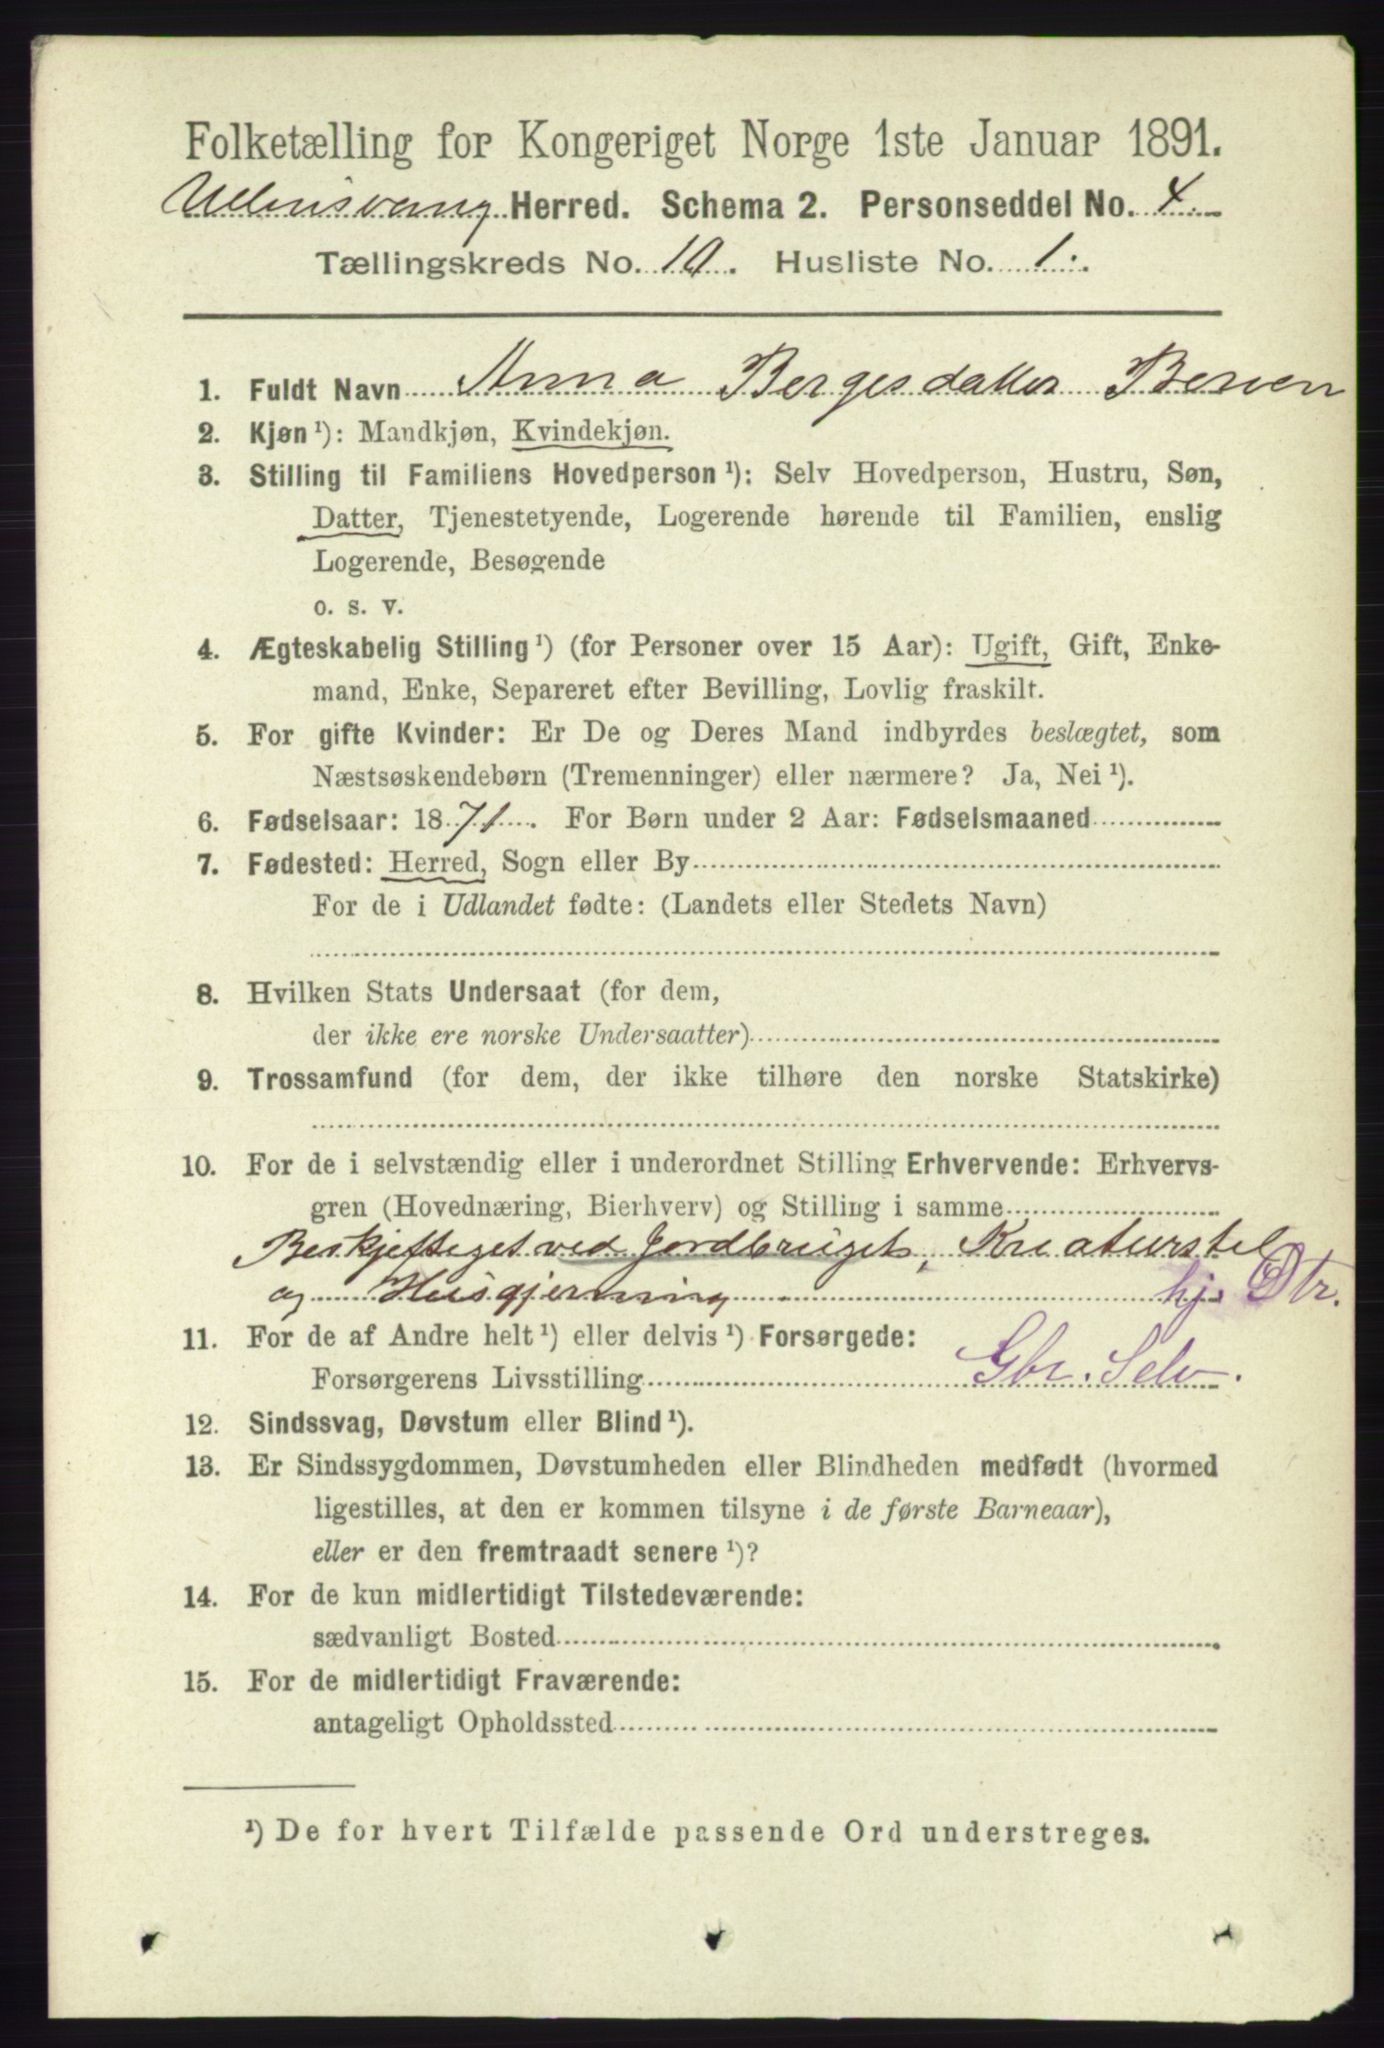 Folketælling for Kongeriget Norge 1ste Januar 1891.
Ullensvang Herred. Schema 2. Personseddel No. 4.
Tællingskreds No. 10. Husliste No. 1.
1. Fuldt Navn Anna Bergesdatter Berven
2. Kjøn¹): Mandkjøn, Kvindekjøn.
3. Stilling til Familiens Hovedperson¹): Selv Hovedperson, Hustru, Søn,
Datter, Tjenestetyende, Logerende hørende til Familien, enslig
Logerende, Besøgende
o. s. v.
4. Ægteskabelig Stilling¹) (for Personer over 15 Aar): Ugift, Gift, Enke-
mand, Enke, Separeret efter Bevilling, Lovlig fraskilt.
5. For gifte Kvinder: Er De og Deres Mand indbyrdes beslægtet, som
Næstsøskendebørn (Tremenninger) eller nærmere? Ja, Nei¹).
6. Fødselsaar: 1871. For Børn under 2 Aar: Fødselsmaaned
7. Fødested: Herred, Sogn eller By
For de i Udlandet fødte: (Landets eller Stedets Navn)
8. Hvilken Stats Undersaat (for dem,
der ikke ere norske Undersaatter)
9. Trossamfund (for dem, der ikke tilhøre den norske Statskirke)
10. For de i selvstændig eller i underordnet Stilling Erhvervende: Erhvervs-
gren (Hovednæring, Bierhverv) og Stilling i samme
Beskjeftiget ved Jordbruget, Kreaturstel
og Husgjerning hj. Dtr.
11. For de af Andre helt¹) eller delvis¹) Forsørgede:
Forsørgerens Livsstilling Gbr. Selv.
12. Sindssvag, Døvstum eller Blind¹).
13. Er Sindssygdommen, Døvstumheden eller Blindheden medfødt (hvormed
ligestilles, at den er kommen tilsyne i de første Barneaar),
eller er den fremtraadt senere¹)?
14. For de kun midlertidigt Tilstedeværende:
sædvanligt Bosted
15. For de midlertidigt Fraværende:
antageligt Opholdssted
¹) De for hvert Tilfælde passende Ord understreges.